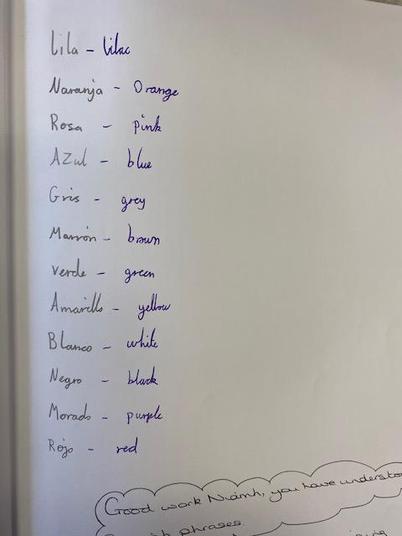 Lila - lilac
Naranja - Orange
Rosa - pink
Azul - blue
Gris - grey
Marrón - brown
Verde - green
Amarillo - yellow
Blanco - white
Negro - black
Morado - purple
Rojo - red
Good work Niamh, you have understo
phrases.